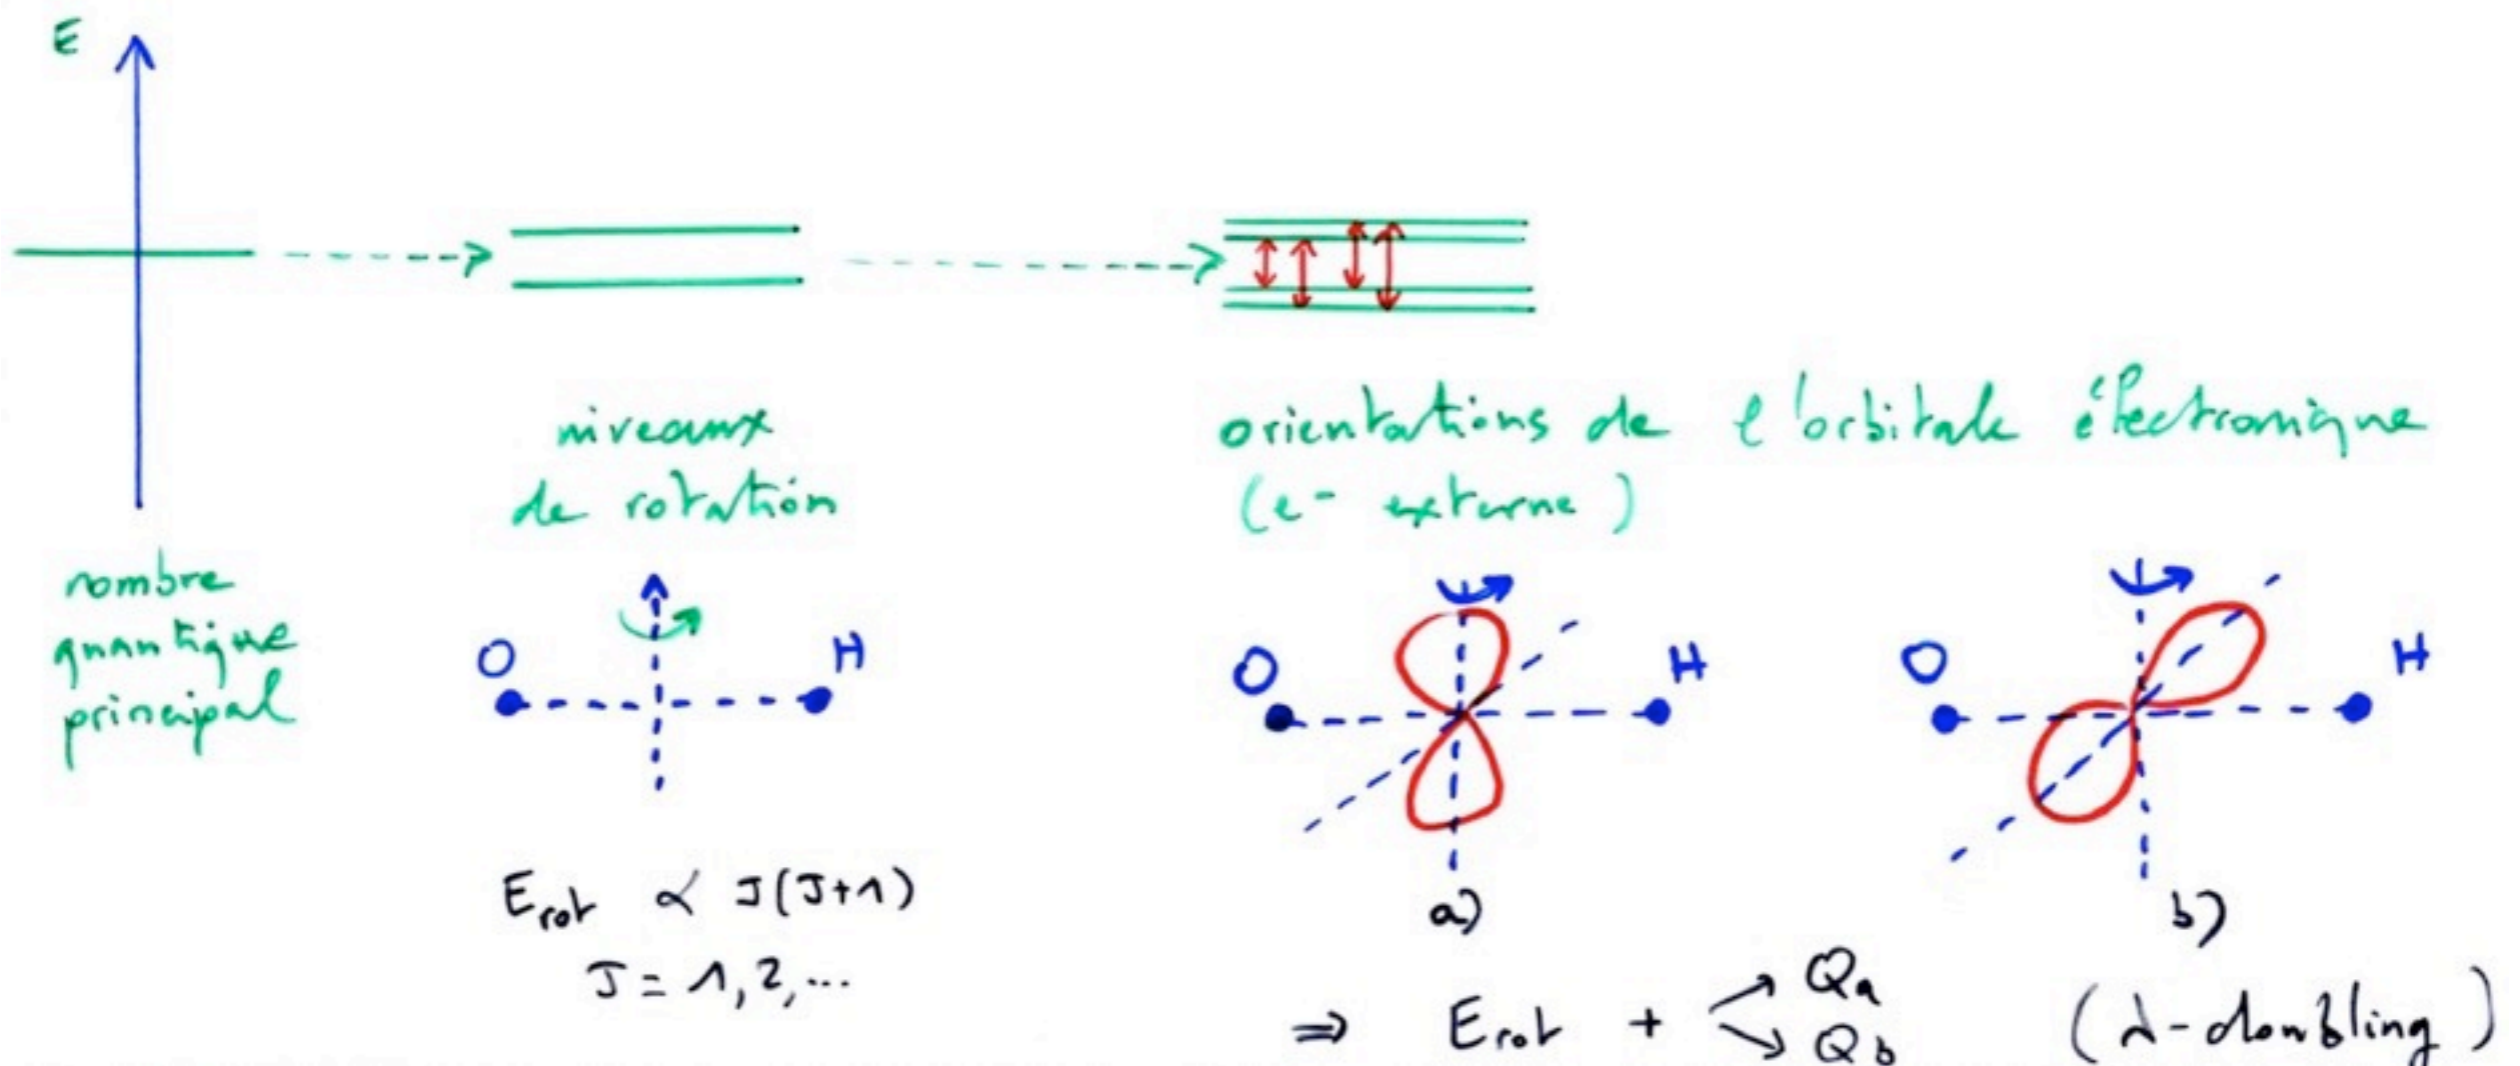 E
niveaux
de rotation
orientations de l'orbitale électronique
(e- externe)
nombre
quantique
principal
O H
O H
O H
a)
b)
Erot ∝ J(J+1)
J = 1,2,...
⇒ Erot + Qa
Qb
(λ-doubling)